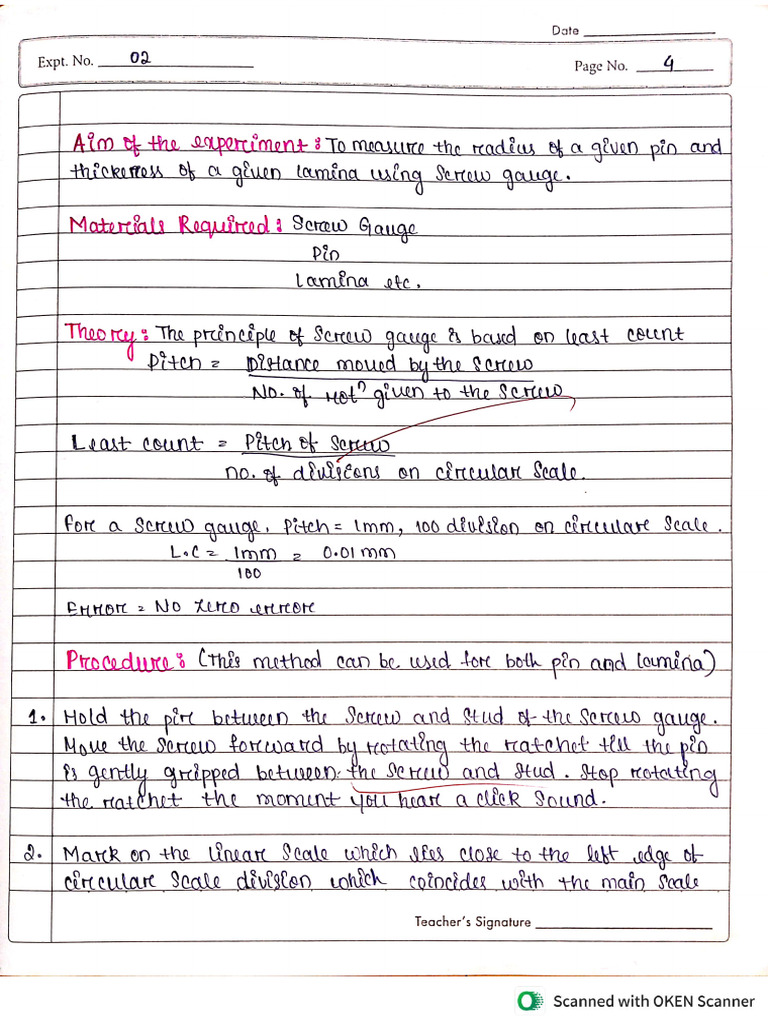 Date
Expt. No. 02
Page No. 4
Aim of the experiment: To measure the radius of a given pin and
thickness of a given lamina using screw gauge.
Materials Required: Screw Gauge
Pin
Lamina etc.
Theory: The principle of screw gauge is based on least count
Pitch = Distance moved by the screw
No. of rotⁿ given to the screw
Least count = Pitch of Screw
no. of divisions on circular scale.
for a screw gauge, Pitch = 1mm, 100 division on circular scale.
L.C = 1mm = 0.01 mm
100
Error = No zero error
Procedure: (This method can be used for both pin and lamina)
1. Hold the pin between the screw and stud of the screw gauge.
Move the screw forward by rotating the ratchet till the pin
is gently gripped between the screw and stud. Stop rotating
the ratchet the moment you hear a click sound.
2. Mark on the linear scale which lies close to the left edge of
circular scale division which coincides with the main scale
Teacher's Signature
Scanned with OKEN Scanner